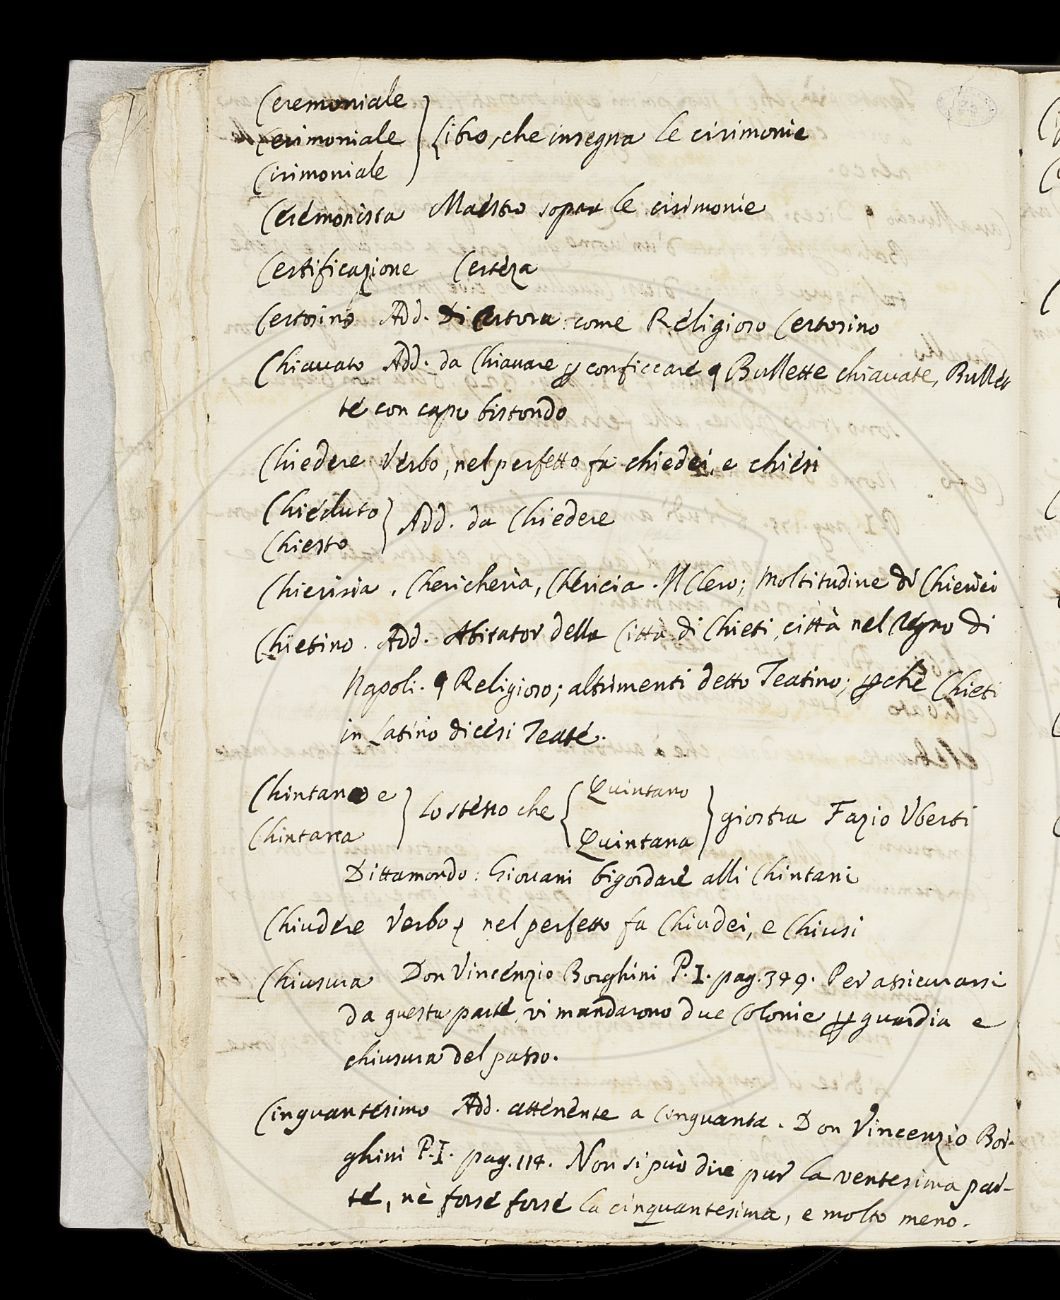 Ceremoniale
Cerimoniale } Libro, che insegna le cirimonie
Cirimoniale
Ceremonista Maestro sopra le cirimonie
Certificazione Certeza
Certosino Add. Di Certosa: come Religioso Certosino
Chiavato Add. da Chiavare ꝑ conficcare ꝯ Bullette chiavate, Bullet
te con capo bistondo
Chiedere Verbo, nel perfetto fa chiedei, e chiesi
Chieduto
Chiesto } Add. da Chiedere
Chierisia, Chericheria, Chericia. Il Clero; moltitudine di Chierici
Chietino. Add. Abitator della Città di Chieti, città nel Regno di
Napoli. ꝯ Religioso; altrimenti detto Teatino; ꝑchè Chieti
in Latino dicesi Teate.
Chintano e } lo stesso che { Quintano } giostra Fazio Uberti
Chintana Quintana
Dittamondo: Giovani bigordare alli Chintani
Chiudere Verbo, nel perfetto fa Chiudei, e Chiusi
Chiusura Don Vincenzio Borghini P.I. pag. 349. Per assicurarsi
da questa parte, vi mandarono due Colonie ꝑ guardia e
chiusura del passo.
Cinquantesimo Add. attenente a Cinquanta. Don Vincenzio Bor-
ghini P.I. pag. 114. Non si può dire pur la ventesima par-
te, nè forse forse la cinquantesima, e molto meno.